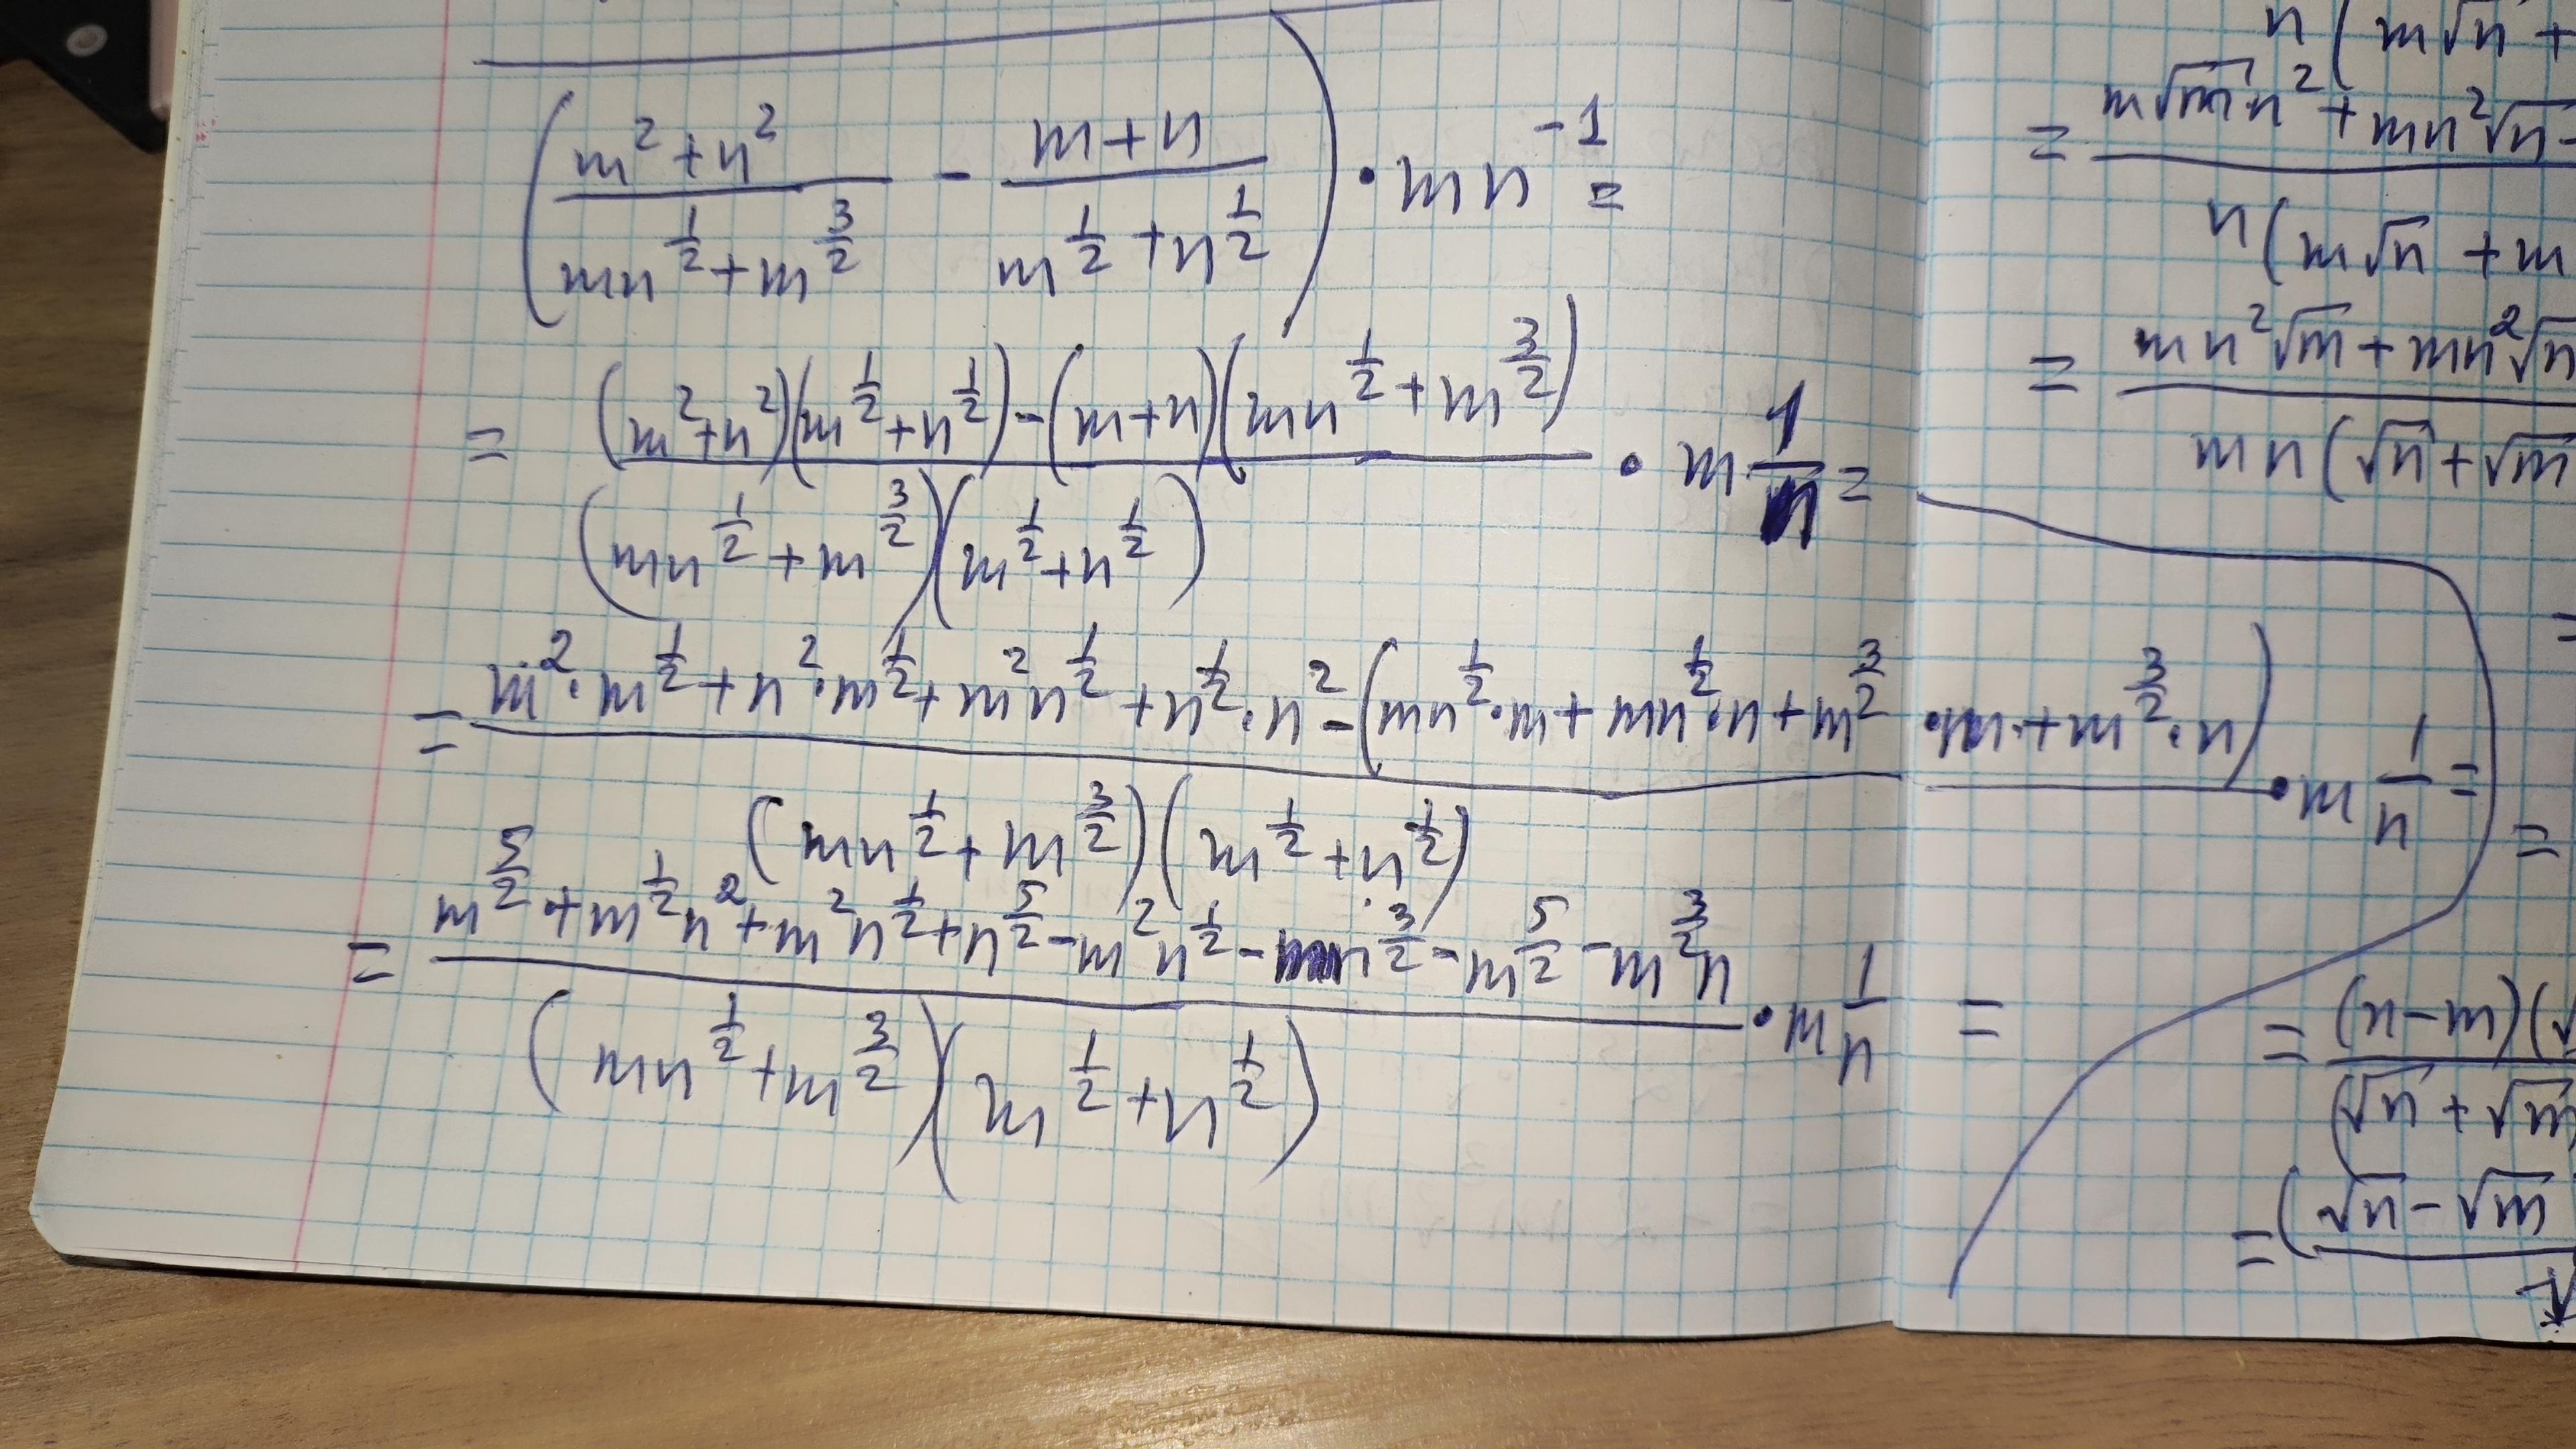 (m²+n²)/(mn^(1/2)+m^(3/2)) - (m+n)/(m^(1/2)+n^(1/2)) ) · mn^(-1) =
= ((m²+n²)(m^(1/2)+n^(1/2))-(m+n)(mn^(1/2)+m^(3/2)))/((mn^(1/2)+m^(3/2))(m^(1/2)+n^(1/2))) · m 1/n =
= (m²·m^(1/2)+n²·m^(1/2)+m²n^(1/2)+n^(1/2)·n²-(mn^(1/2)·m+mn^(1/2)·n+m^(3/2)·m+m^(3/2)·n))/((mn^(1/2)+m^(3/2))(m^(1/2)+n^(1/2))) · m 1/n =
= (m^(5/2)+m^(1/2)n²+m²n^(1/2)+n^(5/2)-m²n^(1/2)-mn^(3/2)-m^(5/2)-m^(3/2)n)/((mn^(1/2)+m^(3/2))(m^(1/2)+n^(1/2))) · m 1/n =
n(m√n+
= m√m n²+mn²√n-
n(m√n+m
= mn²√m+mn²√n
mn(√n+√m
=
=
= (n-m)(√
(√n+√m
= (√n-√m
√